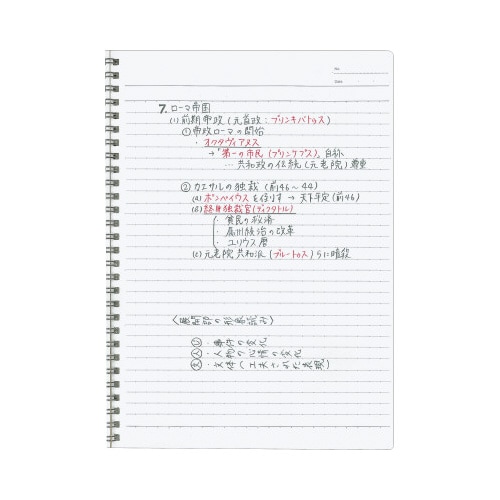 No.
Date
7. ローマ帝国
(1) 前期帝政 (元首政：プリンキパトゥス)
① 帝政ローマの開始
・オクタヴィアヌス
→「第一の市民 (プリンケプス)」自称
… 共和政の伝統 (元老院) 尊重
② カエサルの独裁 (前46～44)
(a) ポンペイウスを倒す → 天下平定 (前46)
(b) 終身独裁官 (ディクタトル)
・貧民の救済
・属州統治の改革
・ユリウス暦
(c) 元老院共和派 (ブルートゥス) らに暗殺
〈展開部の形象読み〉
・事件の変化
㋅・人物の心情の変化
・文体 (工夫された表現)